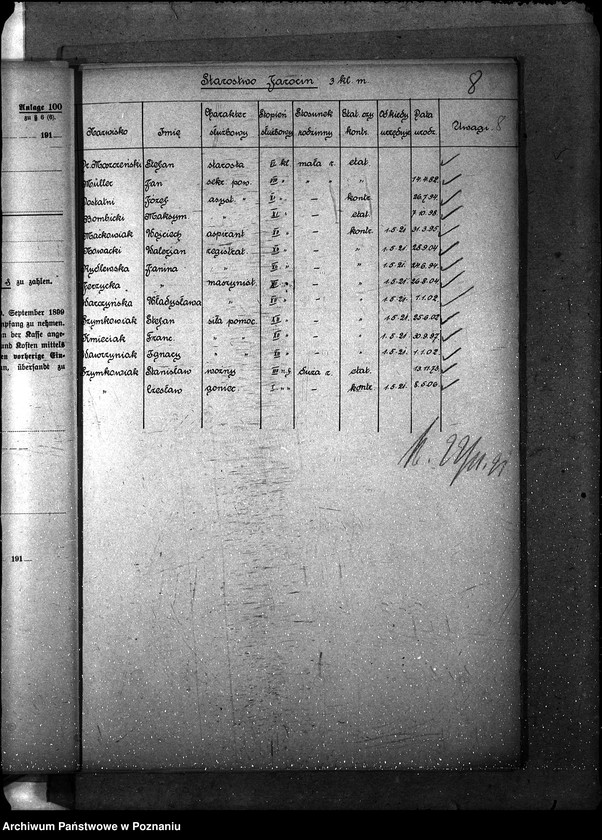 Anlage 100
zu § 6 (6).
191
zu zahlen.
September 1899
mpfang zu nehmen.
n der Kasse ange-
und Kosten mittels
en vorherige Ein-
an, übersandt zu
191
Starostwo Jarocin 3 kl. m
8
Nazwisko Imię Charakter służbowy Stopień służbowy Stosunek rodzinny Etat. czy kontr. Od kiedy urzęduje Data urodz. Uwagi 8
Stefan starosta kl. mała r. etat.
Müller Jan sekr. pow. VIII " " " " 14.4.82.
Dostatni Józef asyst. " – kontr. 26.7.94.
Bombicki Maksym " – etat. 7.10.98.
Maćkowiak Wojciech aspirant – kontr. 1.5.21. 31.3.95
Nowacki Walerjan registrat. – " 1.5.21. 25.9.04
Rydlewska Janina " – " 1.5.21. 24.6.94.
" maszynist. – " 1.5.21. 26.8.04
Warczyńska Władysława " – " 1.5.21. 1.1.02.
Szymkowiak Stefan siła pomoc. – " 1.5.21. 25.6.02
Kmieciak Franc. " " – " 1.5.21. 30.9.87.
Wawrzyniak Ignacy " " – " 1.5.21. 1.1.02.
Szymkowiak Stanisław woźny duża r. etat. 13.11.73.
" Czesław goniec I. – kontr. 1.5.21. 8.5.06.
Archiwum Państwowe w Poznaniu